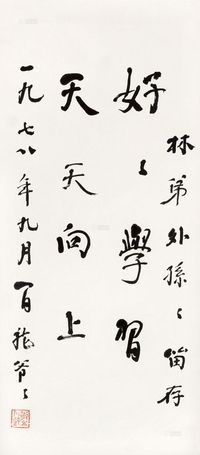 林弟外孫〻留存
好〻學習
天天向上
一九七八年九月 百龍爷〻